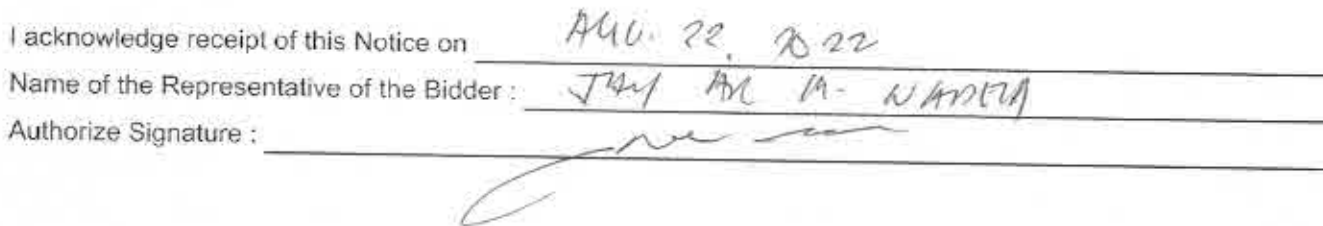 I acknowledge receipt of this Notice on AUG. 22, 2022
Name of the Representative of the Bidder : JAY AR M. NADELA
Authorize Signature :